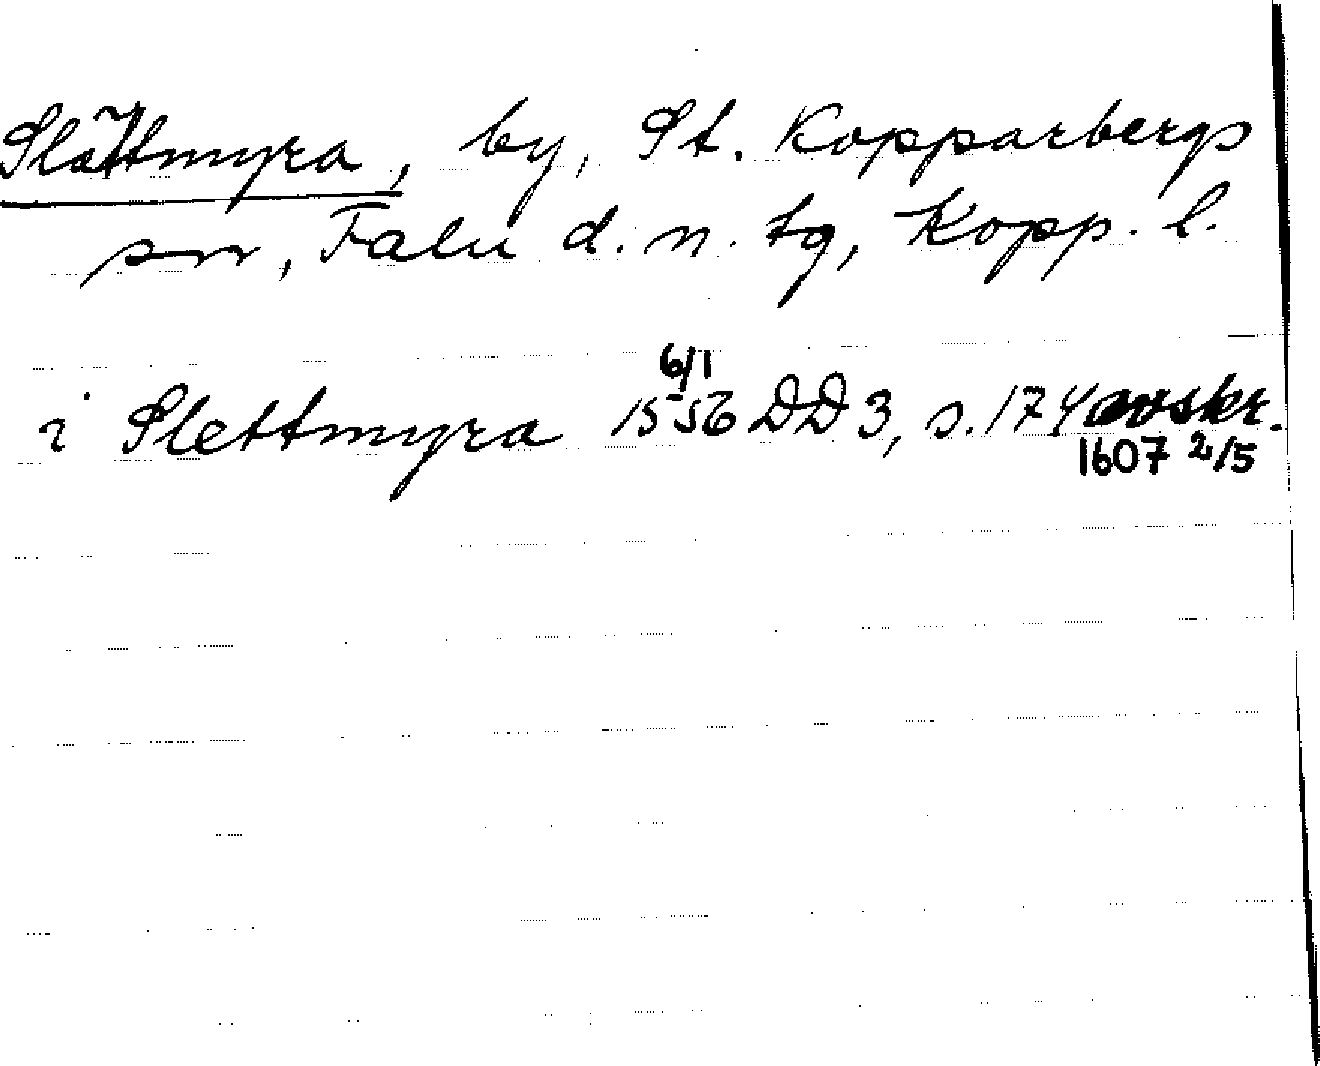 Slättmyra, by, St. Kopparbergs
sn, Falu d. n. tg, Kopp. l.
i Slettmyra 1556 6/1 DD 3, s. 174 avskr.
1607 2/5